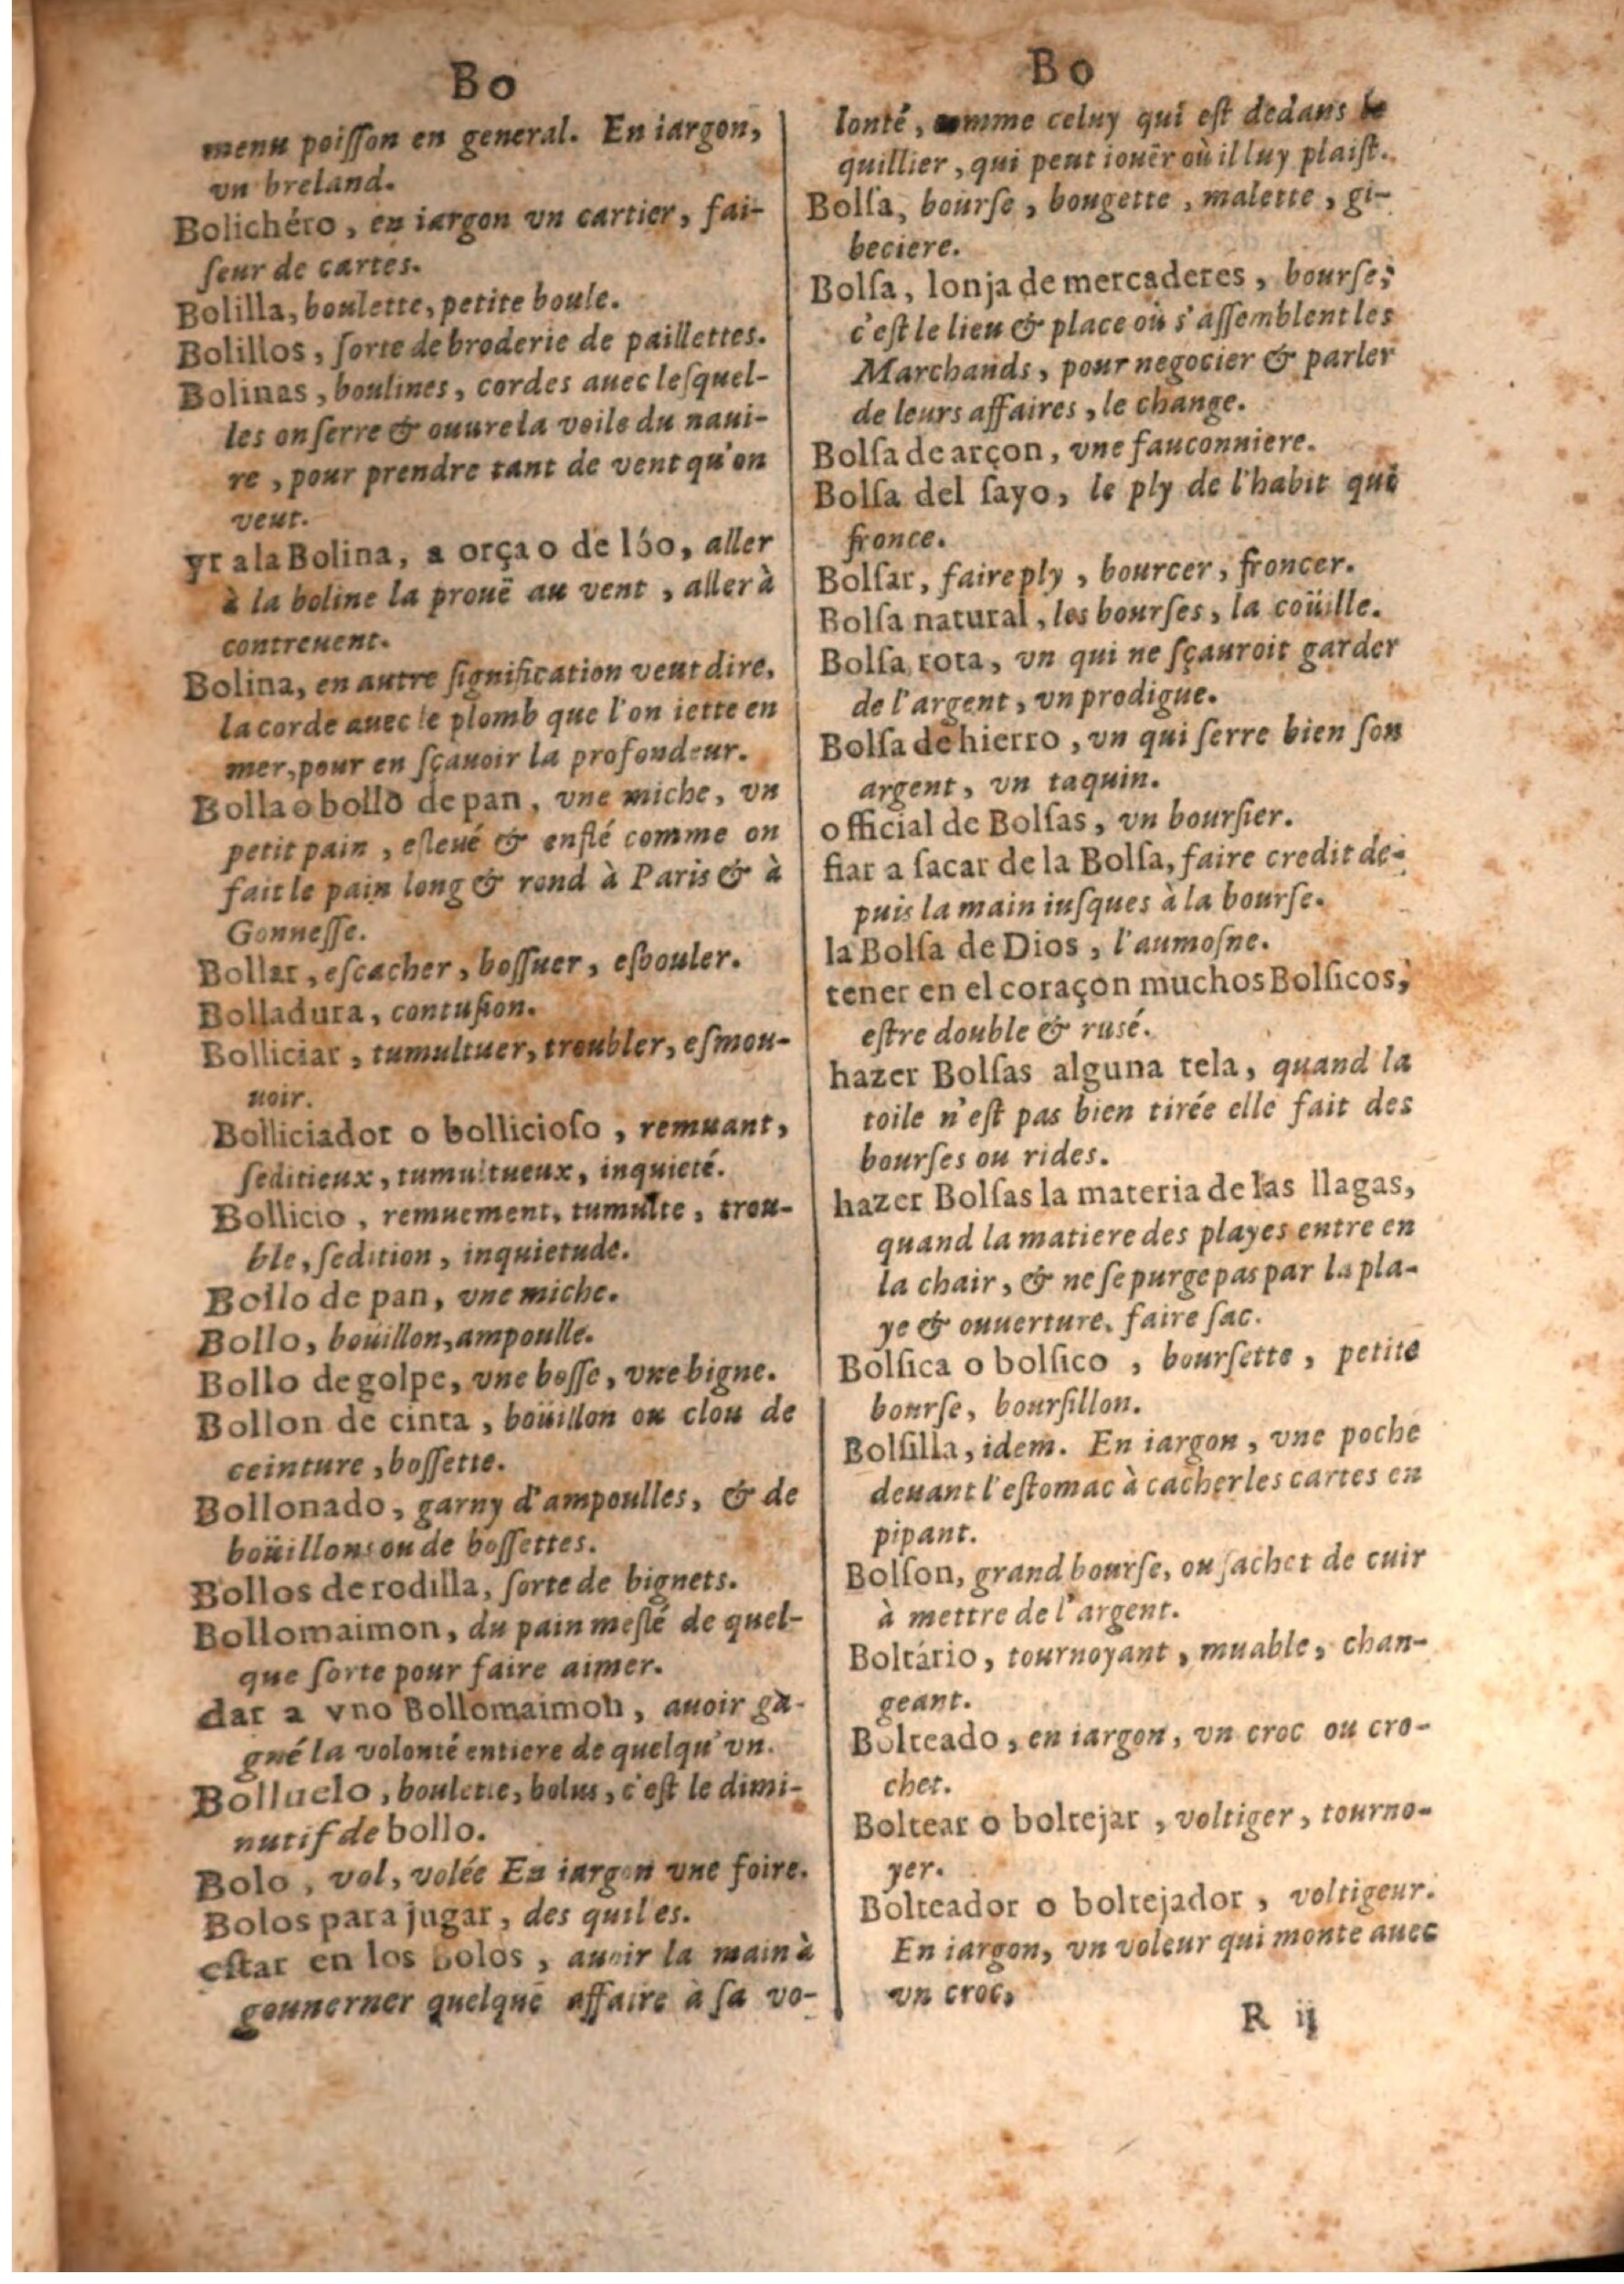 Bo
menu poiſſon en general. En iargon,
vn breland.
Bolichéro, en iargon vn cartier, fai-
ſeur de cartes.
Bolilla, boulette, petite boule.
Bolillos, ſorte de broderie de paillettes.
Bolinas, boulines, cordes auec leſquel-
les on ſerre & ouure la voile du naui-
re, pour prendre tant de vent qu'on
veut.
yr a la Bolina, a orça o de lóo, aller
à la boline la prouë au vent, aller à
contreuent.
Bolina, en autre ſignification veut dire,
la corde auec le plomb que l'on iette en
mer, pour en ſçauoir la profondeur.
Bolla o bollo de pan, vne miche, vn
petit pain, eſleué & enflé comme on
fait le pain long & rond à Paris & à
Gonneſſe.
Bollar, eſcacher, boſſuer, esbouler.
Bolladura, contuſion.
Bolliciar, tumultuer, troubler, eſmou-
uoir.
Bolliciador o bollicioſo, remuant,
ſeditieux, tumultueux, inquieté.
Bollicio, remuement, tumulte, trou-
ble, ſedition, inquietude.
Bollo de pan, vne miche.
Bollo, boüillon, ampoulle.
Bollo de golpe, vne boſſe, vne bigne.
Bollon de cinta, boüillon ou clou de
ceinture, boſſette.
Bollonado, garny d'ampoulles, & de
boüillons ou de boſſettes.
Bollos de rodilla, ſorte de bignets.
Bollomaimon, du pain meſlé de quel-
que ſorte pour faire aimer.
dar a vno Bollomaimon, auoir gà-
gné la volonté entiere de quelqu'vn.
Bolluelo, boulette, bolus, c'eſt le dimi-
nutif de bollo.
Bolo, vol, volée En iargon vne foire.
Bolos para jugar, des quilles.
eſtar en los bolos, auoir la main à
gouuerner quelque affaire à ſa vo-
Bo
lonté, comme celuy qui eſt dedans le
quillier, qui peut iouër où il luy plaiſt.
Bolſa, bourſe, bougette, malette, gi-
beciere.
Bolſa, lonja de mercaderes, bourſe;
c'eſt le lieu & place où s'aſſemblent les
Marchands, pour negocier & parler
de leurs affaires, le change.
Bolſa de arçon, vne fauconniere.
Bolſa del ſayo, le ply de l'habit qui
fronce.
Bolſar, faire ply, bourcer, froncer.
Bolſa natural, les bourſes, la coüille.
Bolſa rota, vn qui ne ſçauroit garder
de l'argent, vn prodigue.
Bolſa de hierro, vn qui ſerre bien ſon
argent, vn taquin.
official de Bolſas, vn bourſier.
fiar a ſacar de la Bolſa, faire credit de-
puis la main iuſques à la bourſe.
la Bolſa de Dios, l'aumoſne.
tener en el coraçon muchos Bolſicos,
eſtre double & rusé.
hazer Bolſas alguna tela, quand la
toile n'eſt pas bien tirée elle fait des
bourſes ou rides.
hazer Bolſas la materia de las llagas,
quand la matiere des playes entre en
la chair, & ne ſe purge pas par la pla-
ye & ouuerture, faire ſac.
Bolſica o bolſico, bourſette, petite
bourſe, bourſillon.
Bolſilla, idem. En iargon, vne poche
deuant l'eſtomac à cacher les cartes en
pipant.
Bolſon, grand bourſe, ou ſachet de cuir
à mettre de l'argent.
Boltário, tournoyant, muable, chan-
geant.
Bolteado, en iargon, vn croc ou cro-
chet.
Boltear o boltejar, voltiger, tourno-
yer.
Bolteador o boltejador, voltigeur.
En iargon, vn voleur qui monte auec
vn croc,
R ij